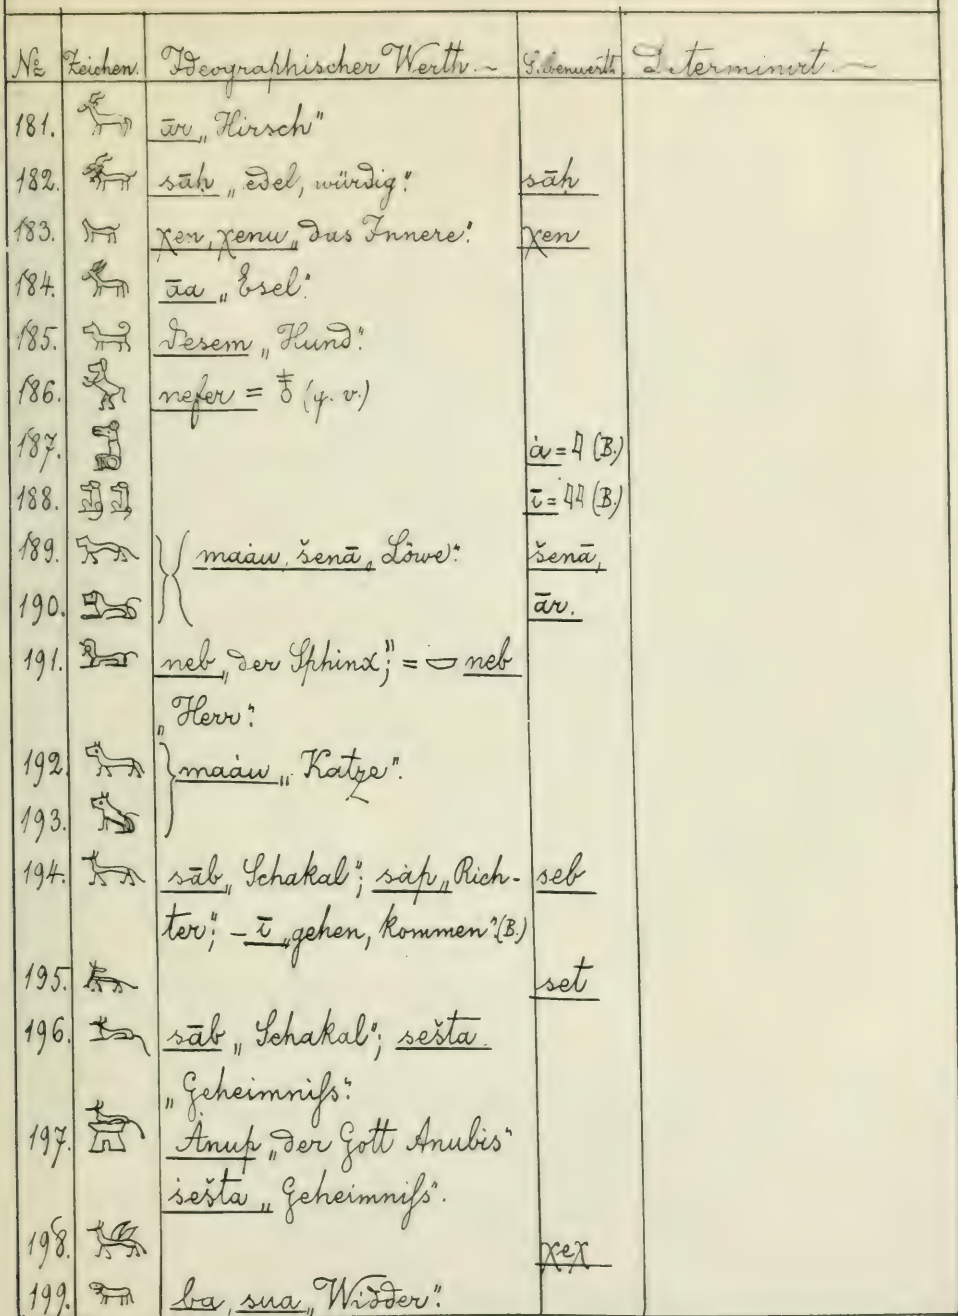 № Zeichen. Ideographischer Werth. Silbenwerth Determinirt.
181. ār „Hirsch"
182. sāḥ „edel, würdig". sāḥ
183. χen, χenu „das Innere". χen
184. āa „Esel".
185. Tesem „Hund".
186. nefer = 𓄤 (q. v.)
187. ȧ = 𓇋 (B.)
188. ī = 𓇋𓇋 (B.)
189. maȧu, šenā, „Löwe". šenā,
190. ār.
191. neb „der Sphinx"; = 𓎟 neb
„Herr".
192. maȧu „Katze".
193.
194. sāb „Schakal"; sȧp „Rich- seb
ter"; – ī „gehen, kommen" (B.)
195. set
196. sāb „Schakal"; sešta
„Geheimniſs".
197. Ȧnup „der Gott Anubis"
sešta „Geheimniſs".
198. χeχ
199. ba, sua „Widder".